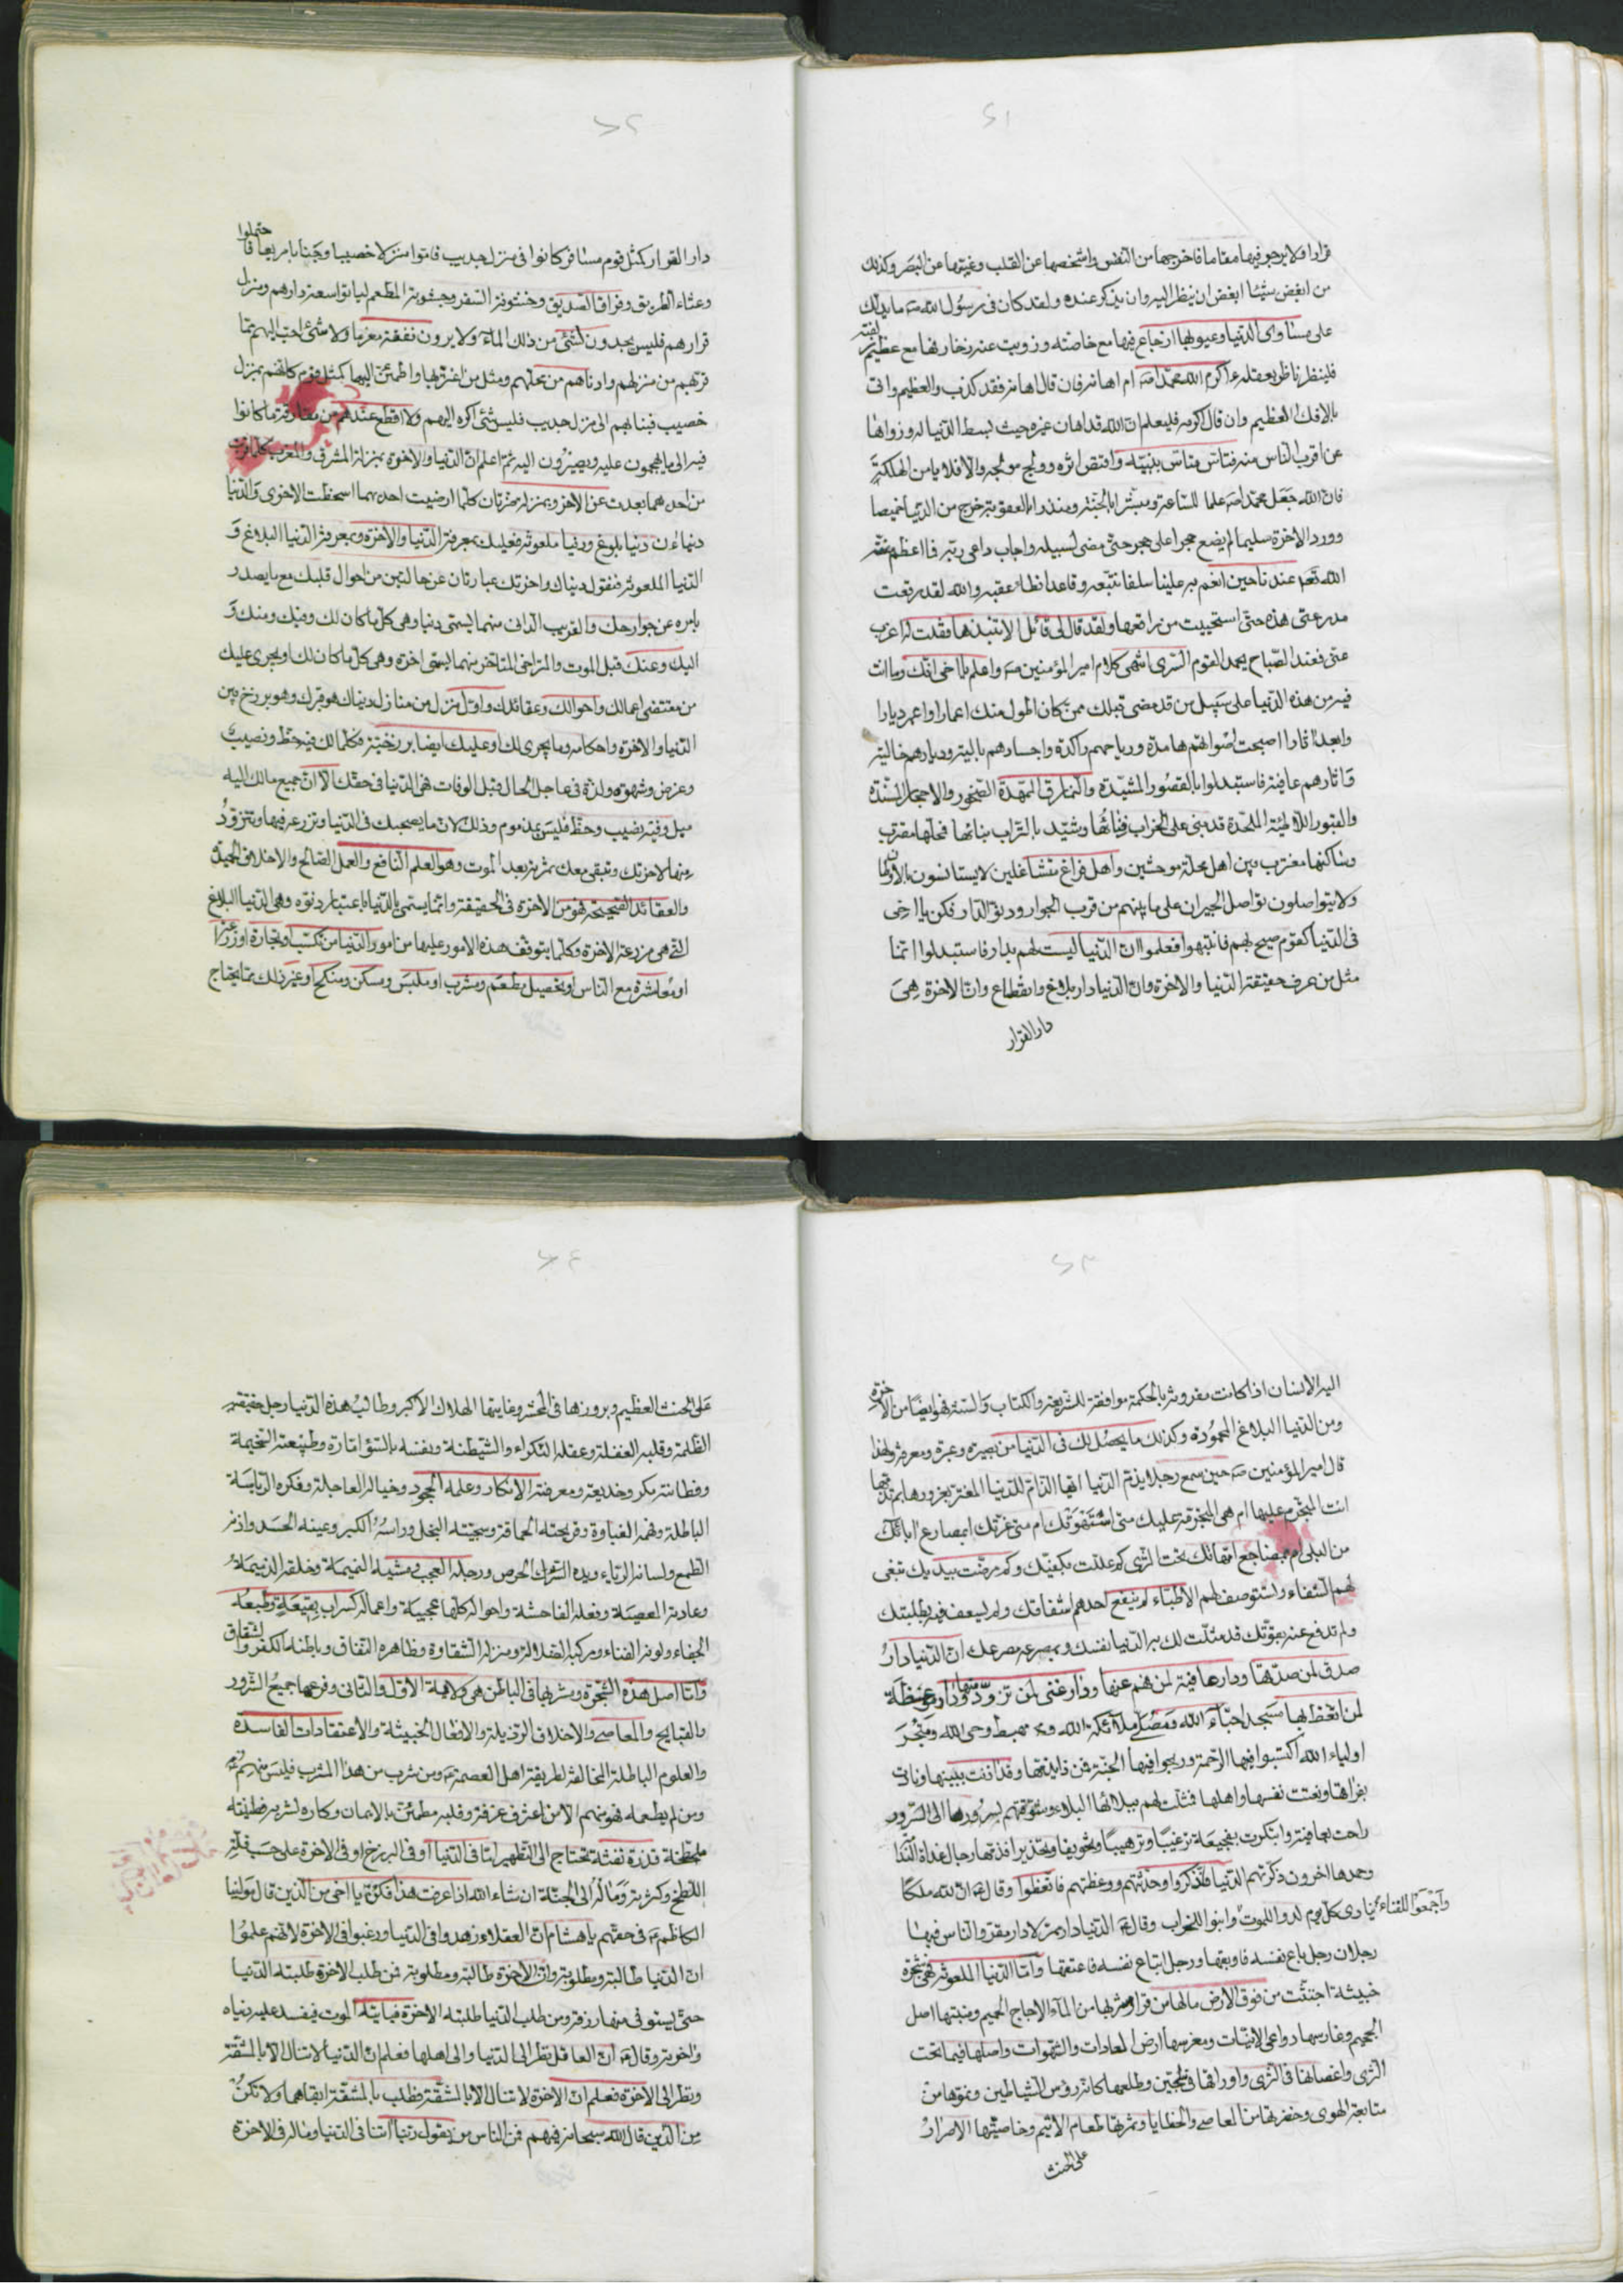 ٤١
قرارا ولا يرجو فيها مقاما فاخرجها من النفس واشخصها عن القلب وغيبها عن البصر وكذلك
من ابغض شيئا ابغض ان ينظر اليه وان يذكر عنده ولقد كان في رسول الله ص ما يدلك
على مساوى الدنيا وعيوبها اذ جاع فيها مع خاصته وزويت عنه زخارفها مع عظيم زلفته
فلينظر ناظر بعقله ءاكرم الله محمدا ص ام اهانه فان قال اهانه فقد كذب والعظيم واتى
بالافك العظيم وان قال اكرمه فليعلم ان الله قد اهان غيره حيث بسط الدنيا له وزواها
عن اقرب الناس منه فتاسى متاس بنبيه واقتص اثره وولج مولجه والا فلا يامن الهلكة
فان الله جعل محمدا ص علما للساعة ومبشرا بالجنة ومنذرا بالعقوبة خرج من الدنيا خميصا
وورد الاخرة سليما لم يضع حجرا على حجر حتى مضى لسبيله واجاب داعى ربه فما اعظم منة
الله تعه عندنا حين انعم به علينا سلفا نتبعه وقائدا نطا عقبه والله لقد رقعت
مدرعتى هذه حتى استحييت من راقعها ولقد قال لى قائل الا تنبذها فقلت له اعزب
عنى فعند الصباح يحمد القوم السرى انتهى كلام امير المؤمنين ص واعلم يا اخى انك وما انت
فيه من هذه الدنيا على سبيل من قد مضى قبلك ممن كان اطول منك اعمارا واعمر ديارا
وابعد اثارا اصبحت اصواتهم هامدة ورياحهم راكدة واجسادهم بالية وديارهم خالية
واثارهم عافية فاستبدلوا بالقصور المشيدة والنمارق الممهدة الصخور والاحجار المسندة
والقبور اللاطئة الملحدة قد بنى على الخراب فناؤها وشيد بالتراب بناؤها فمحلها مقترب
وساكنها مغترب بين اهل محلة موحشين واهل فراغ متشاغلين لا يستانسون بالاوطان
ولا يتواصلون تواصل الجيران على ما بينهم من قرب الجوار ودنو الدار فكن يا اخى
فى الدنيا كقوم صيح بهم فانتبهوا فعلموا ان الدنيا ليست لهم بدار فاستبدلوا انما
مثل من عرف حقيقة الدنيا والاخرة وان الدنيا دار بلاغ وانقطاع وان الاخرة هى
دار القرار
٤٢
دار القرار كمثل قوم مسافر كانوا فى منزل جديب فاموا منزلا خصيبا وجنابا مريعا فاحتملوا
وعثاء الطريق وفراق الصديق وخشونة السفر وجشوبة المطعم لياتوا سعة دارهم ومنزل
قرارهم فليس يجدون لشئ من ذلك الما ولا يرون نفقة مغرما ولا شئ احب اليهم مما
قربهم من منزلهم وادناهم من محلهم ومثل من اغتر بها واطمئن اليها كمثل قوم كانهم بمنزل
خصيب فنبا بهم الى منزل جديب فليس شئ اكره اليهم ولا اقطع عندهم من مفارقة ما كانوا
فيه الى ما يهجمون عليه ويصيرون اليه ثم اعلم ان الدنيا والاخرة بمنزلة المشرق والمغرب كلما قربت
من احدهما بعدت عن الاخر وبمنزلة ضرتان كلما ارضيت احدهما اسخطت الاخرى والدنيا
دنياءان دنيا بلوغ ودنيا ملعونة فعليك بمعرفة الدنيا والاخرة وبمعرفة الدنيا البلاغ و
الدنيا الملعونة فنقول دنياك واخرتك عبارتان عن حالتين من احوال قلبك مع ما يصدر
بامره عن جوارحك والقريب الدانى منهما يسمى دنيا وهى كل ما كان لك وفيك ومنك و
اليك وعنك قبل الموت والمتراخى المتاخر منهما يسمى اخرة وهى كل ما كان لك او يجرى عليك
من مقتضى اعمالك واحوالك وعقائدك واول منزل من منازل دنياك هو قبرك وهو برزخ بين
الدنيا والاخرة واحكامه وما يجرى لك او عليك ايضا برزخية فكلما لك فيه حظ ونصيب
وغرض وشهوة ولذة فى عاجل الحال قبل الوفات فهى الدنيا فى حقك الا ان جميع مالك اليه
ميل وفيه نصيب وحظ فليس بمذموم وذلك لان ما يصحبك فى الدنيا وتزرعه فيها وتتزود
منها لاخرتك وتبقى معك ثمرته بعد الموت وهو العلم النافع والعمل الصالح والاخلاق الجميلة
والعقائد الصحيحة فهو من الاخرة فى الحقيقة وانما يسمى بالدنيا باعتبار دنوه وهى الدنيا البلاغ
التى هى مزرعة الاخرة وكلما يتوقف هذه الامور عليها من امور الدنيا من تكسب وتجارة او زراعة
او معاشرة مع الناس او تحصيل مطعم ومشرب او ملبس ومسكن ومنكح او غير ذلك مما يحتاج
٤٣
اليه الانسان اذا كانت مقرونة بالحكمة موافقة للشريعة والكتاب والسنة فهو ايضا من الاخرة
ومن الدنيا البلاغ المحمودة وكذلك ما يحصل لك فى الدنيا من بصيرة وعبرة ومعرفة ولهذا
قال امير المؤمنين ص حين سمع رجلا يذم الدنيا ايها الذام للدنيا المغتر بغرورها بم تذمها
انت المتجرم عليها ام هى المتجرمة عليك متى استهوتك ام متى غرتك ابمصارع ابائك
من البلى ام بمضاجع امهاتك تحت الثرى كم عللت بكفيك وكم مرضت بيديك تبغى
لهم الشفاء وتستوصف لهم الاطباء لم ينفع احدهم اشفاقك ولم يسعف فيه بطلبتك
ولم تدفع عنه بقوتك قد مثلت لك به الدنيا نفسك وبمصرعه مصرعك ان الدنيا دار
صدق لمن صدقها ودار عافية لمن فهم عنها ودار غنى لمن تزود منها ودار موعظة
لمن اتعظ بها مسجد احباء الله ومصلى ملائكة الله ومهبط وحى الله ومتجر
اولياء الله اكتسبوا فيها الرحمة وربحوا فيها الجنة فمن ذا يذمها وقد اذنت ببينها ونادت
بفراقها ونعت نفسها واهلها فمثلت لهم ببلائها البلاء وشوقتهم بسرورها الى السرور
راحت بعافية وابتكرت بفجيعة ترغيبا وترهيبا وتخويفا وتحذيرا فذمها رجال غداة الندا
وحمدها اخرون ذكرتهم الدنيا فتذكروا وحدثتهم ووعظتهم فاتعظوا وقال ع ان لله ملكا
ينادى كل يوم لدوا للموت وابنوا للخراب واجمعوا للفناء وقال ع الدنيا دار ممر لا دار مقر والناس فيها
رجلان رجل باع نفسه فاوبقها ورجل ابتاع نفسه فاعتقها واما الدنيا الملعونة فهى شجرة
خبيثة اجتثت من فوق الارض مالها من قرار وشربها من الماء الاجاج الحميم ومنبتها اصل
الجحيم وغارسها دواعى الانيات ومغرسها ارض العادات والشهوات واصلها فيما تحت
الثرى واغصانها فى الثرى واوراقها فى سجين وطلعها كانه رؤس الشياطين ونموها من
متابعة الهوى وخضرتها من المعاصى والخطايا وثمرتها طعام الاثيم وخاصيتها الاصرار
على الحنث
٤٤
على الحنث العظيم وبروزها فى المحشر وغايتها الهلاك الاكبر وطالب هذه الدنيا رجل حقيقته
الظلمة وقلبه الغفلة وعقله النكراء والشيطنة ونفسه بالسؤ امارة وطبيعته
وفطانته مكر وخديعة ومعرفته الانكار وعلمه الجحود وخياله العاجلة وفكره الرياسة
الباطلة وفهمه الغباوة وقريحته الحماقة وسجيته البخل وراسه الكبر وعينه الحسد واذنه
الطمع ولسانه الرياء ويده الشره والحرص ورجله العجب ومشيه النميمة وخلقه الذميمة
وعادته العصبية وفعله الفاحشة واحواله كلها عجيبة واعماله كسراب بقيعة وطبعه
الجفاء ولونه الفناء ومركبه الضلالة ومنزله الشقاوة وظاهره النفاق وباطنه الكفر والشقاق
واما اصل هذه الشجرة وشربها فى الباطن هى ولاية الاول والثانى وفرعها جميع الشرور
والقبايح والمعاصى والاخلاق الرذيلة والافعال الخبيثة والاعتقادات الفاسدة
والعلوم الباطلة المخالفة لطريقة اهل العصمة ع ومن شرب من هذا المشرب فليس منهم ع
ومن لم يطعمه فهو منهم الا من اغترف غرفة وقلبه مطمئن بالايمان وكاره لشربه فطينته
ملطخة قذرة نفثة تحتاج الى التطهير اما فى الدنيا او فى البرزخ او فى الاخرة على حسب قلة
اللطخ وكثرته وماله الى الجنة ان شاء الله اذا عرفت هذا فكن يا اخى من الذين قال مولينا
الكاظم ع فى حقهم يا هشام ان العقلاء زهدوا فى الدنيا ورغبوا فى الاخرة لانهم علموا
ان الدنيا طالبة ومطلوبة وان الاخرة طالبة ومطلوبة فمن طلب الاخرة طلبته الدنيا
حتى يستوفى منها رزقه ومن طلب الدنيا طلبته الاخرة فياتيه الموت فيفسد عليه دنياه
واخرته وقال ع ان العاقل نظر الى الدنيا والى اهلها فعلم ان الدنيا لا تنال الا بالمشقة
ونظر الى الاخرة فعلم ان الاخرة لا تنال الا بالمشقة فطلب بالمشقة ابقاهما ولا تكن
من الذين قال الله سبحانه فيهم فمن الناس من يقول ربنا اتنا فى الدنيا وماله فى الاخرة